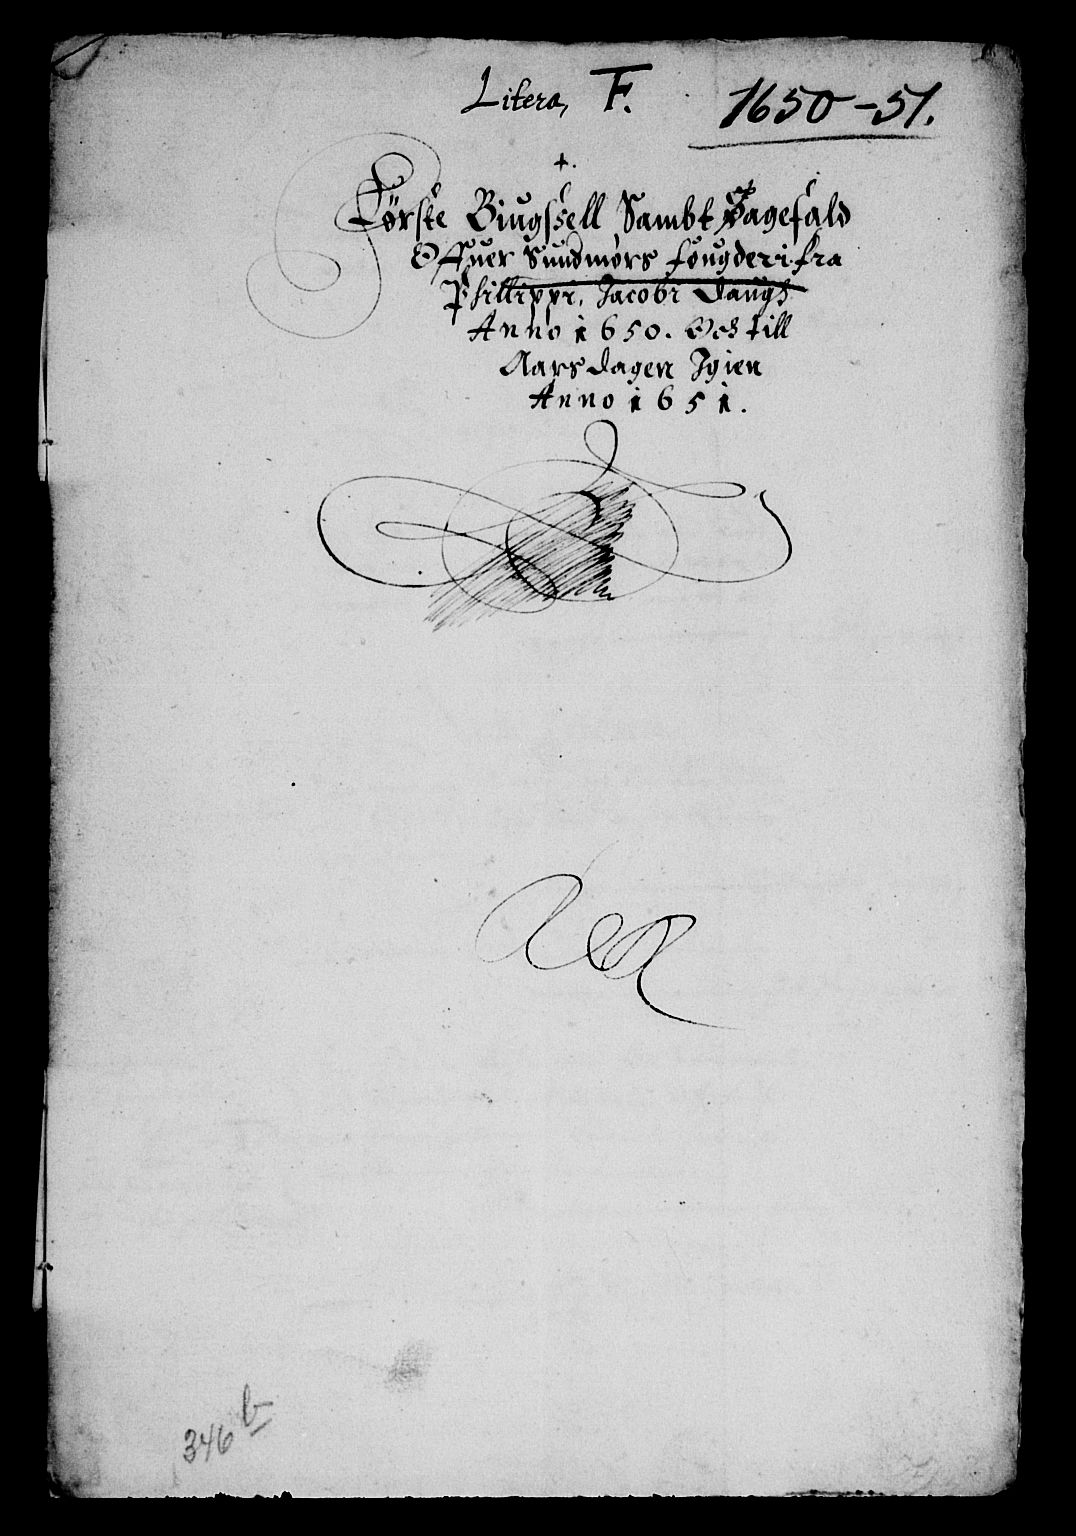 Litera, F. 1650-51.
+.
Förste Biugssell Sambt Sagefald
Offuer Sundmørs fougderi fra
Phillippi, Jacobi Daugs
Anno 1650. Och till
Aarsdagen Igien
Anno 1651.
346 b